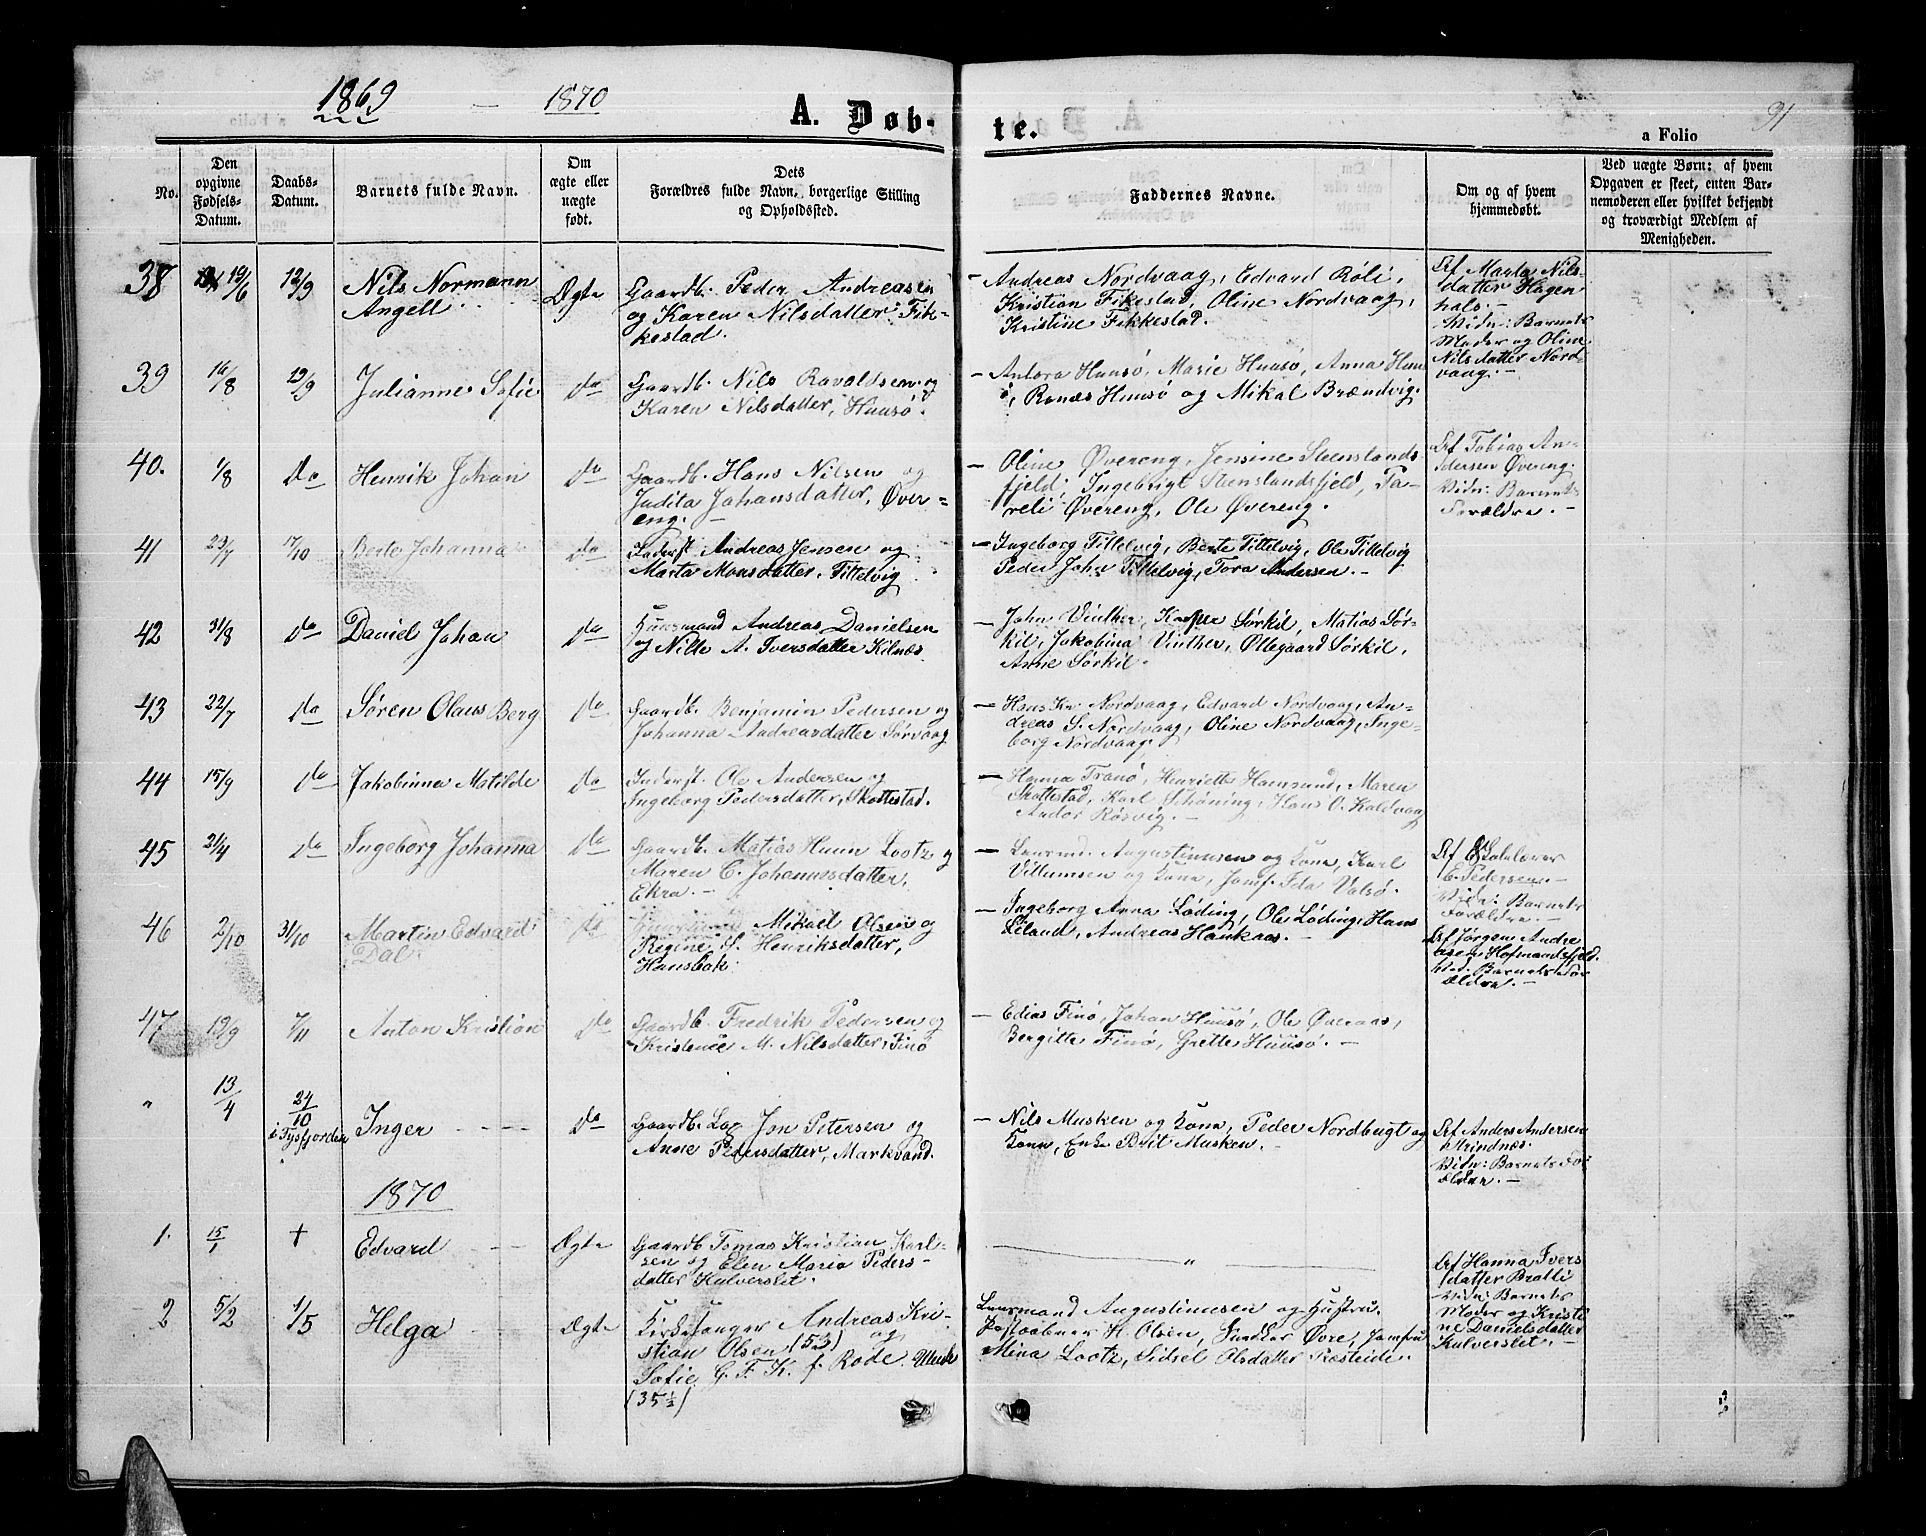 1869 – 1870
A. Døb-
te.
91
a Folio
No.
Den opgivne Fødsels-Datum.
Daabs-Datum.
Barnets fulde Navn.
Om ægte eller uægte født.
Dets Forældres fulde Navn, borgerlige Stilling og Opholdssted.
Faddernes Navne.
Om og af hvem hjemmedøbt.
Ved uægte Børn: af hvem Opgaven er skeet, enten Barnemoderen eller hvilket bekjendt og troværdigt Medlem af Menigheden.
38 19/6 12/9 Nils Normann
Angell
Ægte
Gaardb. Peder Andreasen
og Karen Nilsdatter Fik-
kestad.
– Andreas Nordvaag, Edvard Röli,
Kristian Fikestad, Oline Nordvaag,
Kristine Fikkestad.
Af Marta Nils-
datter Hagen
hals.–
Vidn: Barnets
Moder og Oline
Nilsdatter Nord-
vaag.–
39 16/8 19/9 Julianne Sofie
do
Gaardb. Nils Ravaldsen og
Karen Nilsdatter, Huusø.
– Antora Huusø, Marie Huusø, Anna Huus
ø, Ronæs Huusø og Mikal Brændvig.
40. 1/8 do Henrik Johan
do
Gaardb. Hans Nilsen og
Judita Johansdatter, Øver-
eng.–
– Oline Øvereng, Jensine Steenslands
fjeld, Ingebrigt Stenslandsfjeld, Pa-
reli Øvereng, Ole Øvereng.
Af Tobias An-
dersen Øvereng.
Vidn: Barnets
Forældre.–
41 23/7 17/10 Berte Johanna
do
Inderst Andreas Jensen og
Marta Monsdatter, Tittelvig
– Ingeborg Tittelvig, Berte Tittelvig, Ole Tittelvig
Peder John Tittelvig, Tora Andersen.–
42 31/8 do Daniel Johan
do
Huusmand Andreas Danielsen
og Nille A. Iversdatter Kilnæs.
– John Vinther, Kasper Sörkil, Matias Sör-
kil, Jakobina Vinther, Ollegaard Sörkil,
Anne Sörkil.
43 22/7 do Søren Olaus Berg
do
Gaardb. Benjamin Pedersen og
Johanna Andreasdatter Sörvaag
– Hans Kr. Nordvaag, Edvard Nordvaag, An-
dreas S. Nordvaag, Oline Nordvaag, Inge-
borg Nordvaag.
44 15/9 do Jakobinna Matilde
do
Inderst. Ole Andersen og
Ingeborg Pedersdatter, Skottestad.
– Hanna Tranö, Henriette Hamsund, Maren
Skottestad, Karl Schöning, Hans O. Kaldvaag
Andor Rösvig.–
45 21/4 do Ingeborg Johanna
do
Gaardb. Matias Huun Lootz og
Maren C. Johannesdatter,
Ekra.–
– Lensmd. Augustinusen og Kone, Karl
Villumsen og Kone, Jomf. Ida Valsö.
Af Skolelærer
C. Pedersen.–
Vidn: Barnets
Forældre.–
46 2/10 31/10 Martin Edvard
Dal
do
Mikael Olsen og
Regine H. Henriksdatter,
Hansbak
– Ingeborg Anna Löding, Ole Löding, Hans
Eiland, Andreas Haukaas.–
Af Jørgen Andre
asen Hofmandsfjeld.
Vid. Barnets For
ældre.–
47 19/9 7/11 Anton Kristian
do
Gaardb. Fredrik Pedersen og
Kristence M. Nilsdatter, Finö
– Edias Finö, Johan Huusö, Ole Överaas,
Bergitte Finö, Grette Huusö.–
" 13/4 24/10
i Tysfjorden
Inger
do
Gaardb. Lap Jon Petersen og
Anne Pedersdatter, Markvand.
– Nils Musken og Kone, Peder Nordbugt og
Kone, Enke Brit Musken.–
Af Anders Andersen
Grindnæs.
Vidn: Barnets For
ældre.–
1870
1. 15/1 + Edvard
Ægte
Gaardb. Tomas Kristian Karl-
sen og Elen Maria Peders-
datter Kulverslet.
"
Af Hanna Ivers
datter Bratli
Vidn: Barnets
Moder og Kristi-
ne Danielsdatter
Kulverslet.–
2 5/2 1/5 Helga
Ægte
Kirkesanger Andreas Kri-
stian Olsen (52) og
Sofie G. F. K. f. Rode Munk
(35½)
Lensmand Augustinusen og Hustru,
Postaabner H. Olsen, Snedker Øvre, Jomfru
Mina Lootz, Sidsel Olsdatter Præsteide.